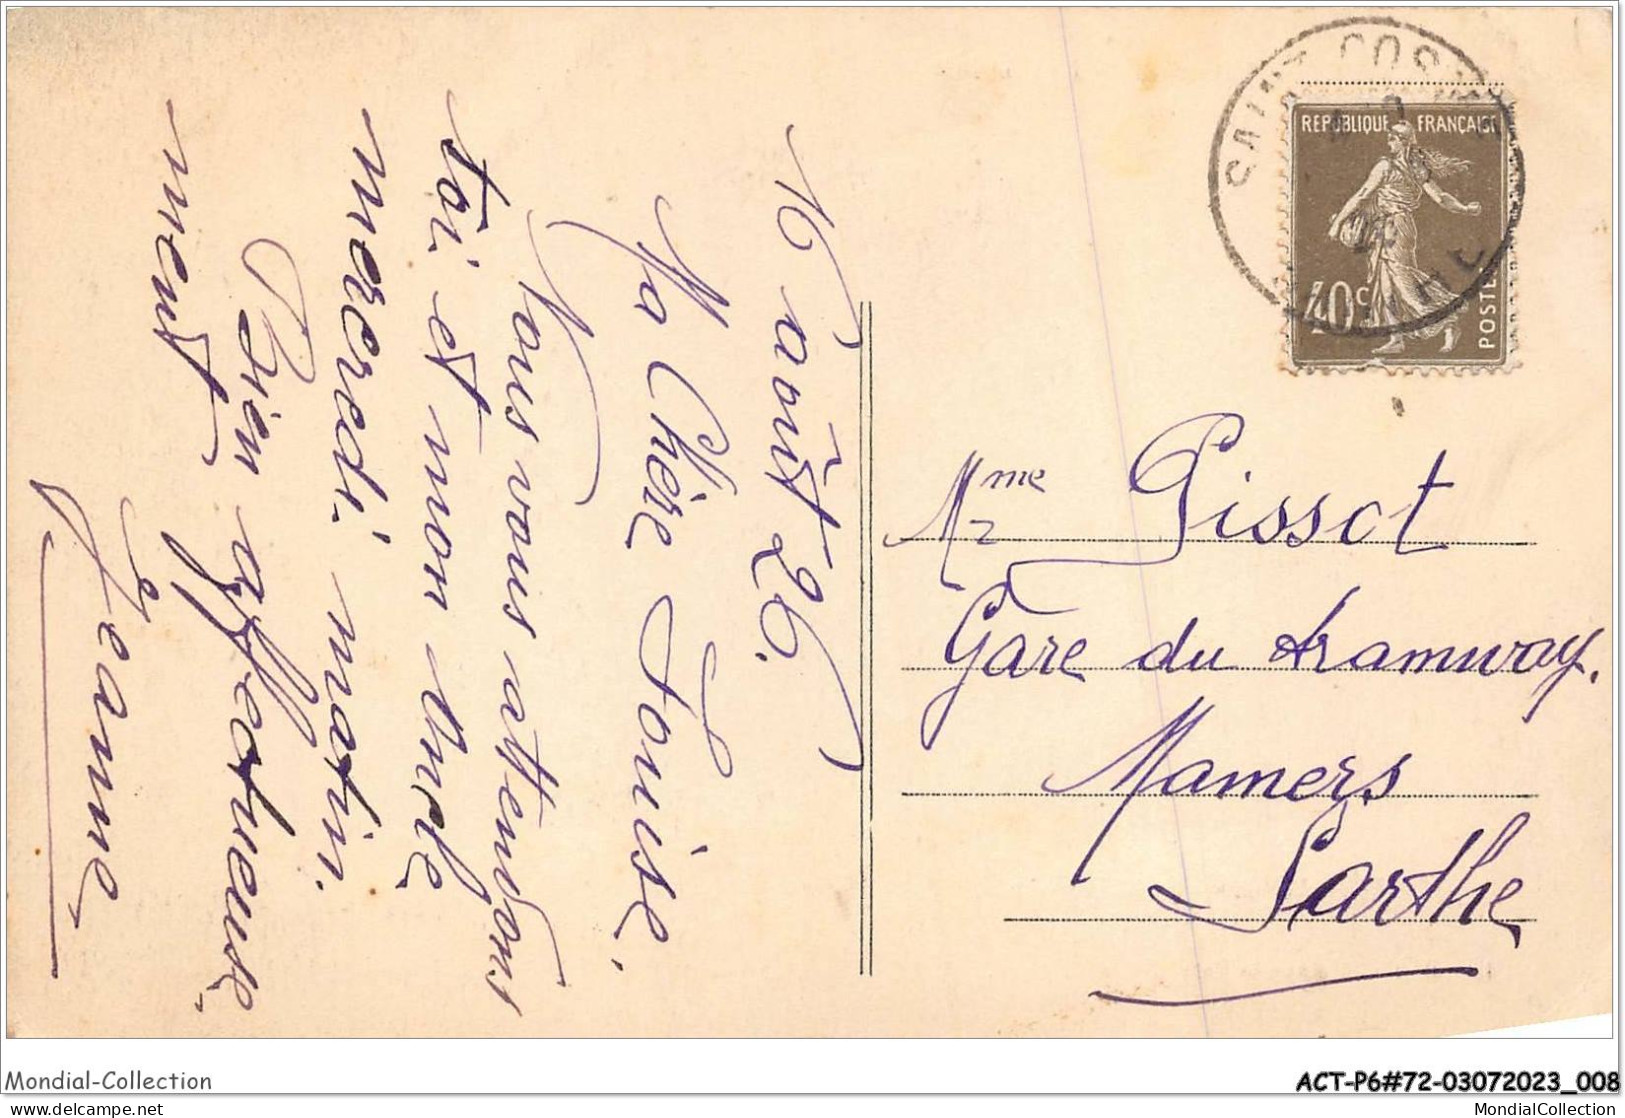 16 août 26.
Ma Chère Louise,
Nous vous attendons
toi et mon oncle
mercredi matin.
Bien affectueuse-
ment
Jeanne
SAINT COSME
REPUBLIQUE FRANÇAISE
40c
POSTES
Mme Pissot
Gare du tramway.
Mamers
Sarthe
Mondial-Collection
ACT-P6#72-03072023_008
MondialCollection